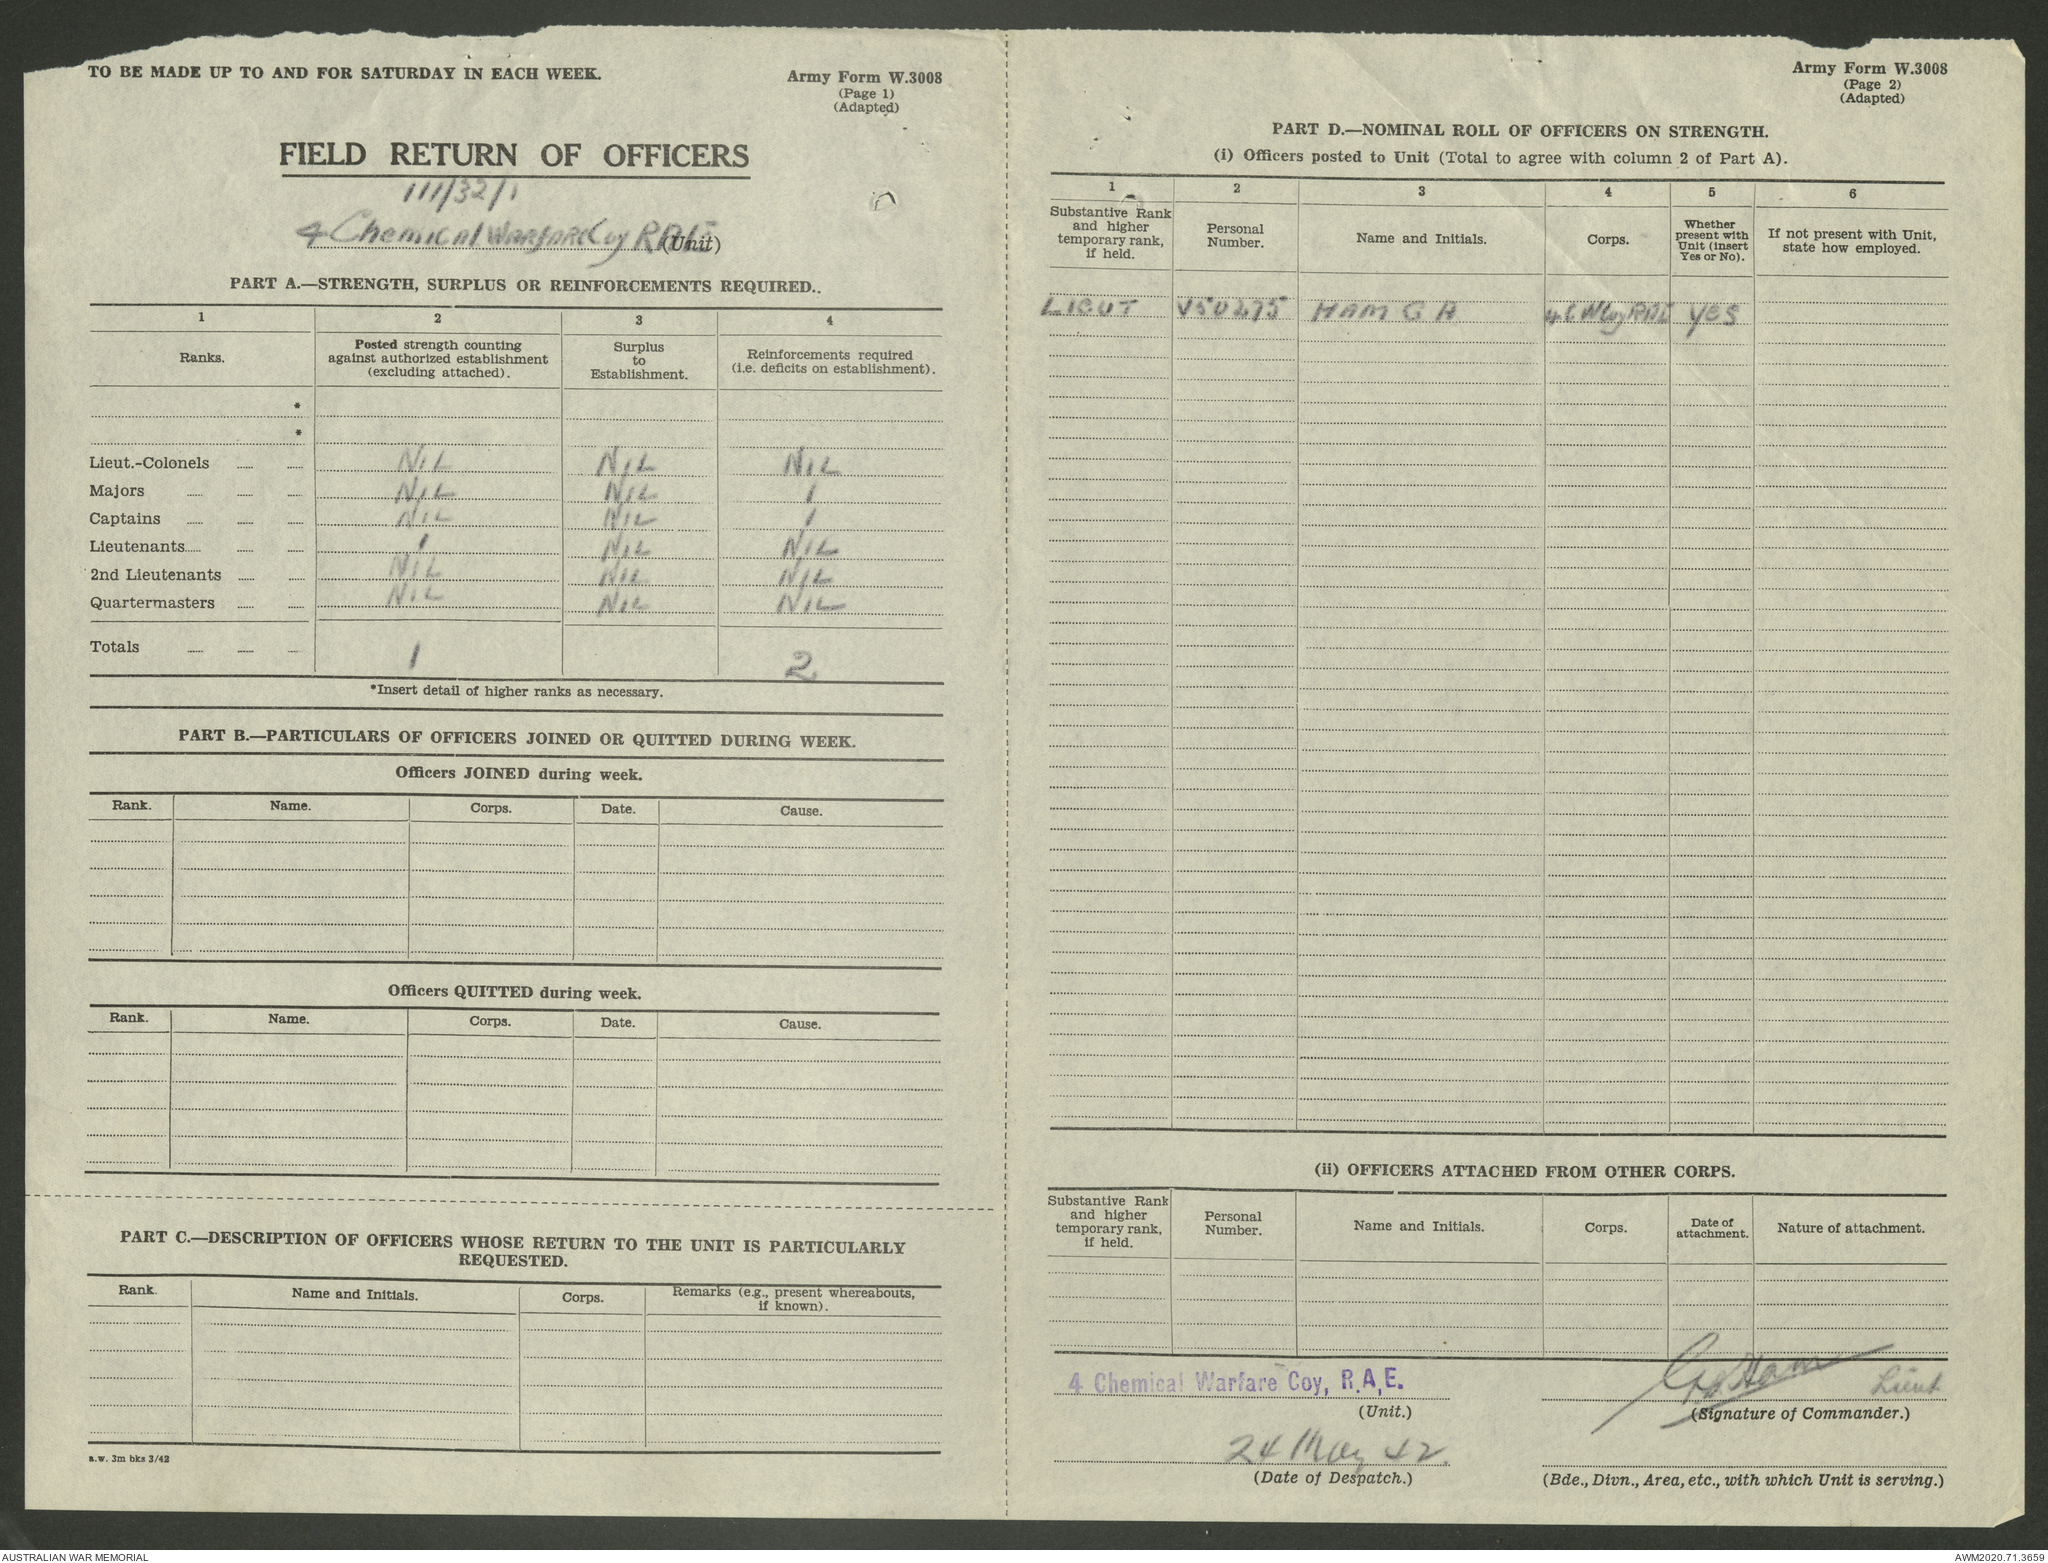 TO BE MADE UP TO AND FOR SATURDAY IN EACH WEEK.
Army Form W.3008
(Page 1)
(Adapted)
FIELD RETURN OF OFFICERS
111/32/1
4 Chemical Warfare Coy RAE (Unit)
PART A.—STRENGTH, SURPLUS OR REINFORCEMENTS REQUIRED..
1 2 3 4
Ranks. Posted strength counting against authorized establishment (excluding attached). Surplus to Establishment. Reinforcements required (i.e. deficits on establishment).
*
*
Lieut.-Colonels .... .... NIL NIL NIL
Majors .... .... .... NIL NIL 1
Captains .... .... .... NIL NIL 1
Lieutenants.... .... .... 1 NIL NIL
2nd Lieutenants .... .... NIL NIL NIL
Quartermasters .... .... NIL NIL NIL
Totals .... .... .... 1 2
*Insert detail of higher ranks as necessary.
PART B.—PARTICULARS OF OFFICERS JOINED OR QUITTED DURING WEEK.
Officers JOINED during week.
Rank. Name. Corps. Date. Cause.
Officers QUITTED during week.
Rank. Name. Corps. Date. Cause.
PART C.—DESCRIPTION OF OFFICERS WHOSE RETURN TO THE UNIT IS PARTICULARLY
REQUESTED.
Rank. Name and Initials. Corps. Remarks (e.g., present whereabouts, if known).
a.w. 3m bks 3/42
Army Form W.3008
(Page 2)
(Adapted)
PART D.—NOMINAL ROLL OF OFFICERS ON STRENGTH.
(i) Officers posted to Unit (Total to agree with column 2 of Part A).
1 2 3 4 5 6
Substantive Rank and higher temporary rank, if held. Personal Number. Name and Initials. Corps. Whether present with Unit (insert Yes or No). If not present with Unit, state how employed.
LIEUT V50275 HAM G A 4 C W Coy RAE YES
(ii) OFFICERS ATTACHED FROM OTHER CORPS.
Substantive Rank and higher temporary rank, if held. Personal Number. Name and Initials. Corps. Date of attachment. Nature of attachment.
4 Chemical Warfare Coy, R.A.E.
(Unit.)
GA Ham Lieut
(Signature of Commander.)
24 May 42.
(Date of Despatch.)
(Bde., Divn., Area, etc., with which Unit is serving.)
AUSTRALIAN WAR MEMORIAL
AWM2020.71.3659